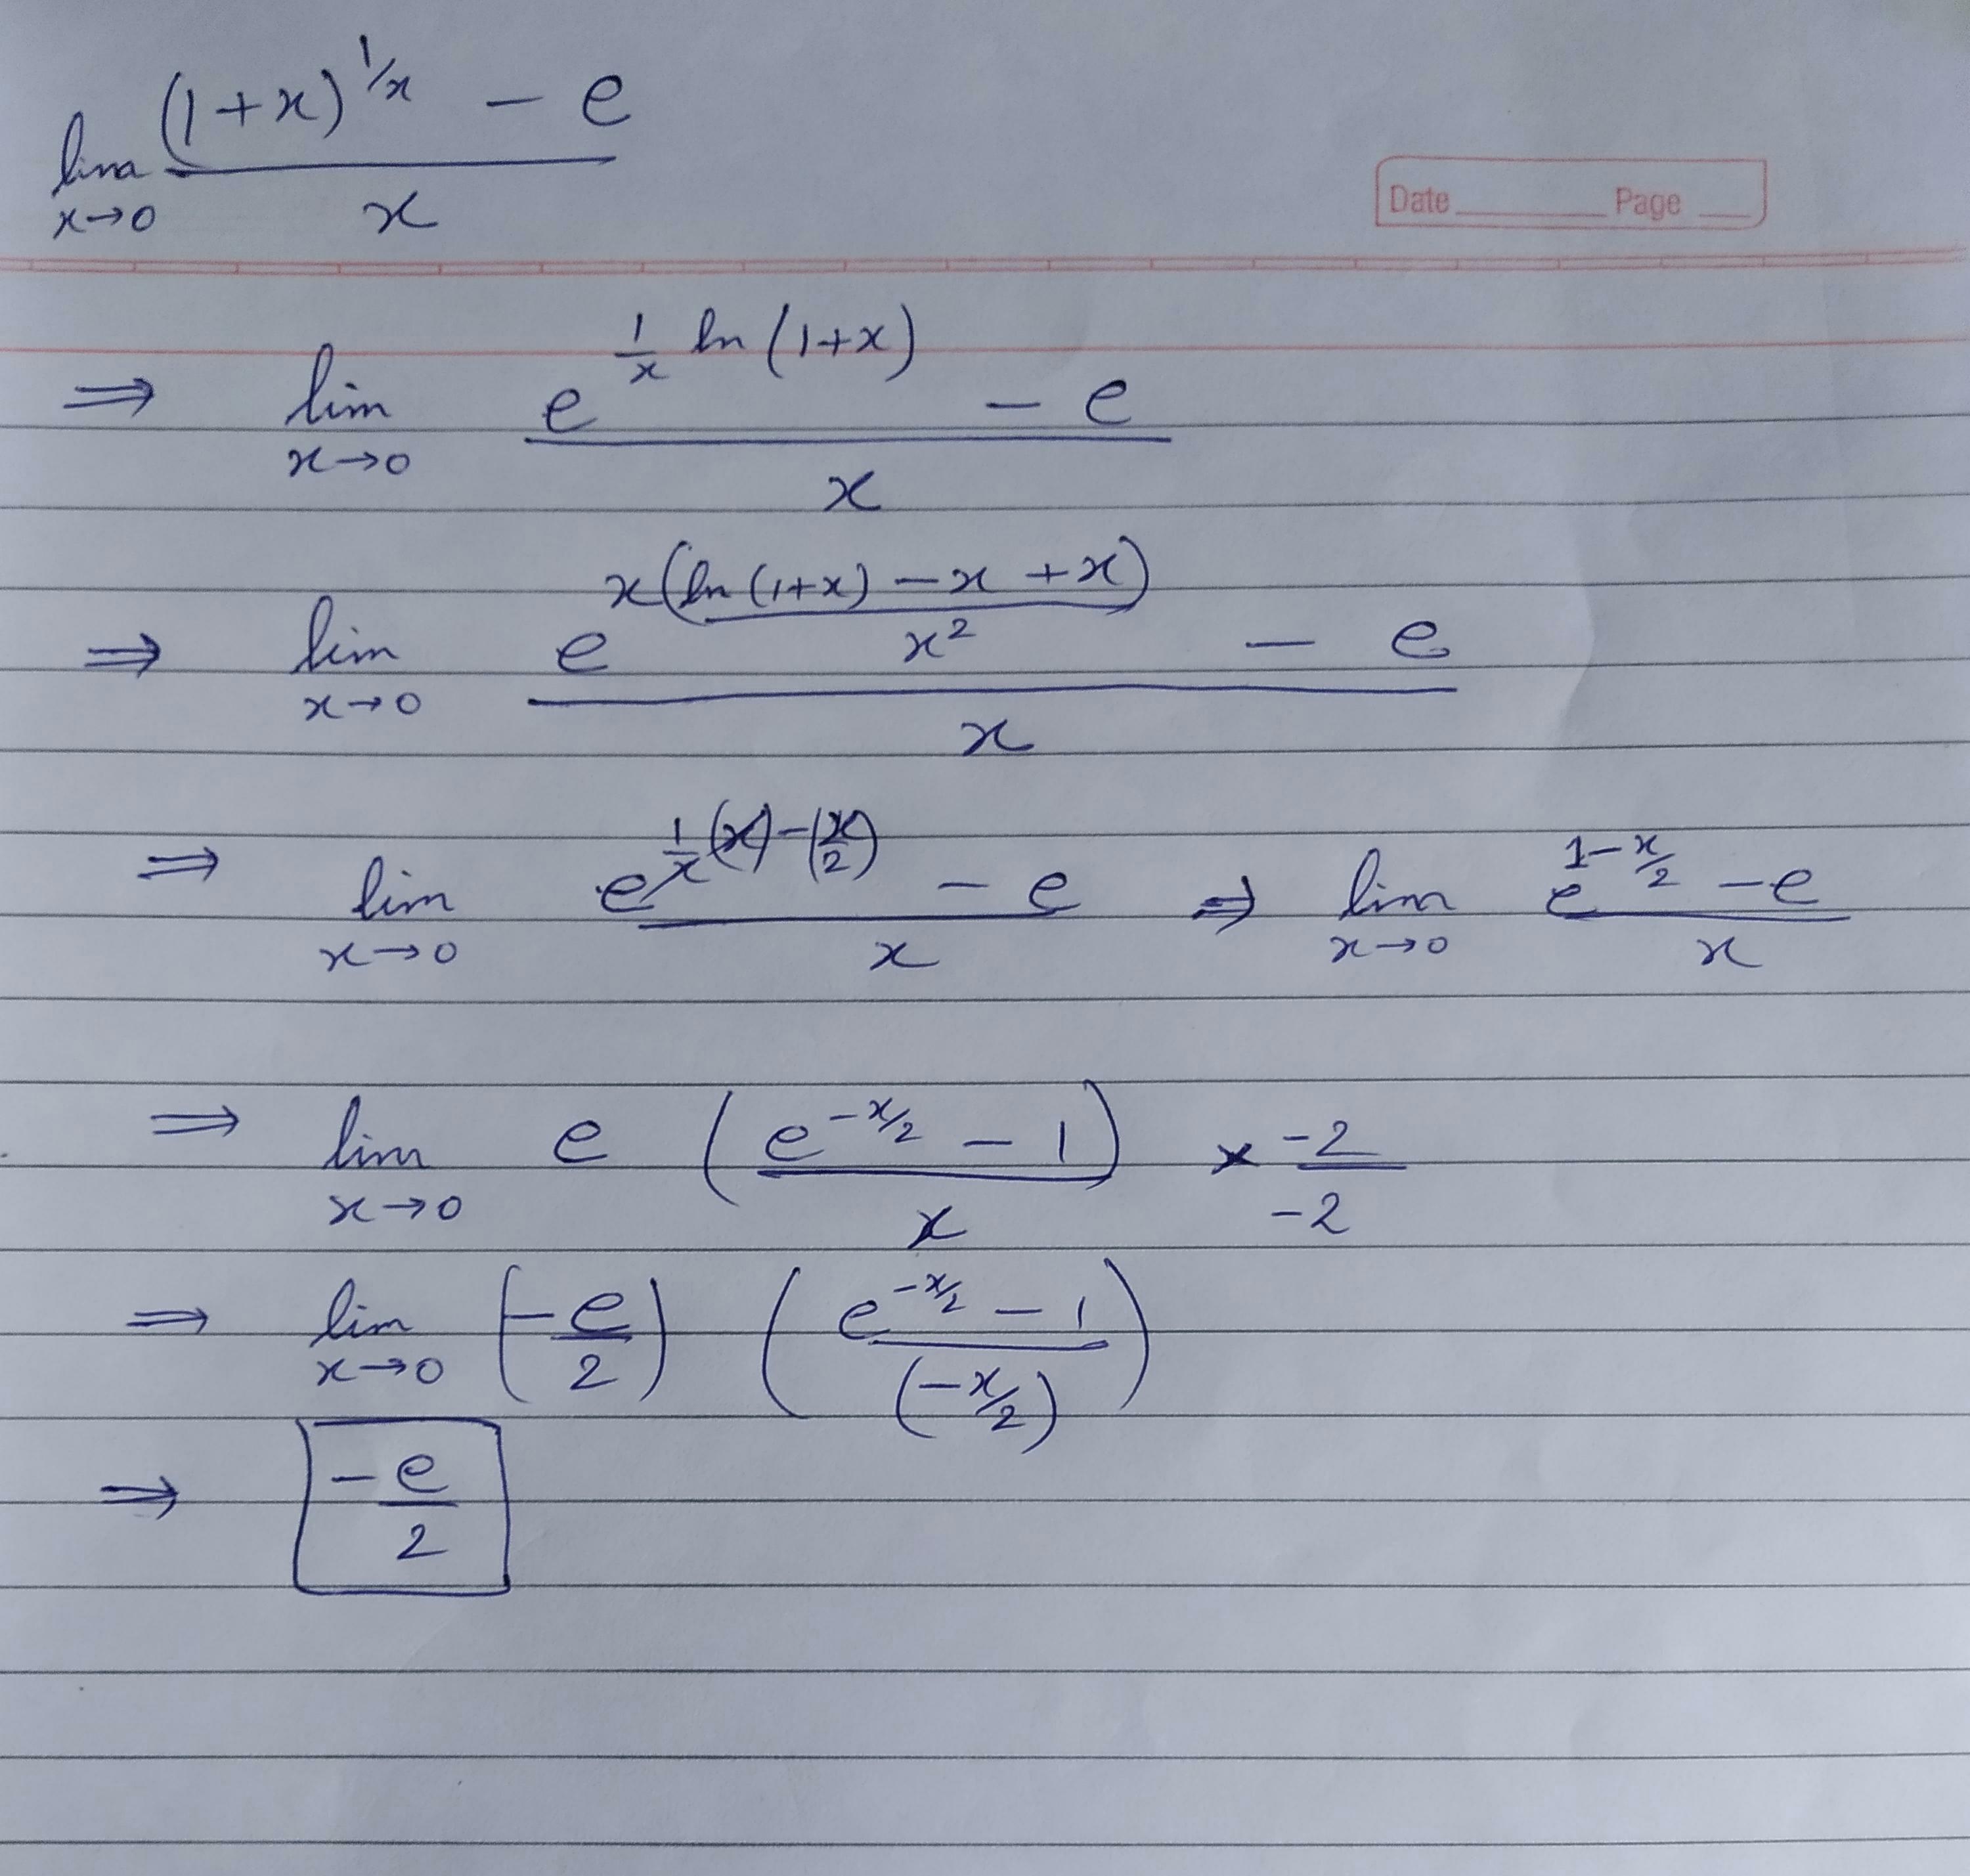 lim x→0 ((1+x)^(1/x) - e)/x
Date Page
⇒ lim x→0 (e^(1/x ln(1+x)) - e)/x
⇒ lim x→0 (e^(x((ln(1+x) - x + x)/x²)) - e)/x
⇒ lim x→0 (e^(1/x (x) - (x/2)) - e)/x ⇒ lim x→0 (e^(1-x/2) - e)/x
⇒ lim x→0 e ((e^(-x/2) - 1)/x) × -2/-2
⇒ lim x→0 (-e/2) ((e^(-x/2) - 1)/(-x/2))
⇒ -e/2